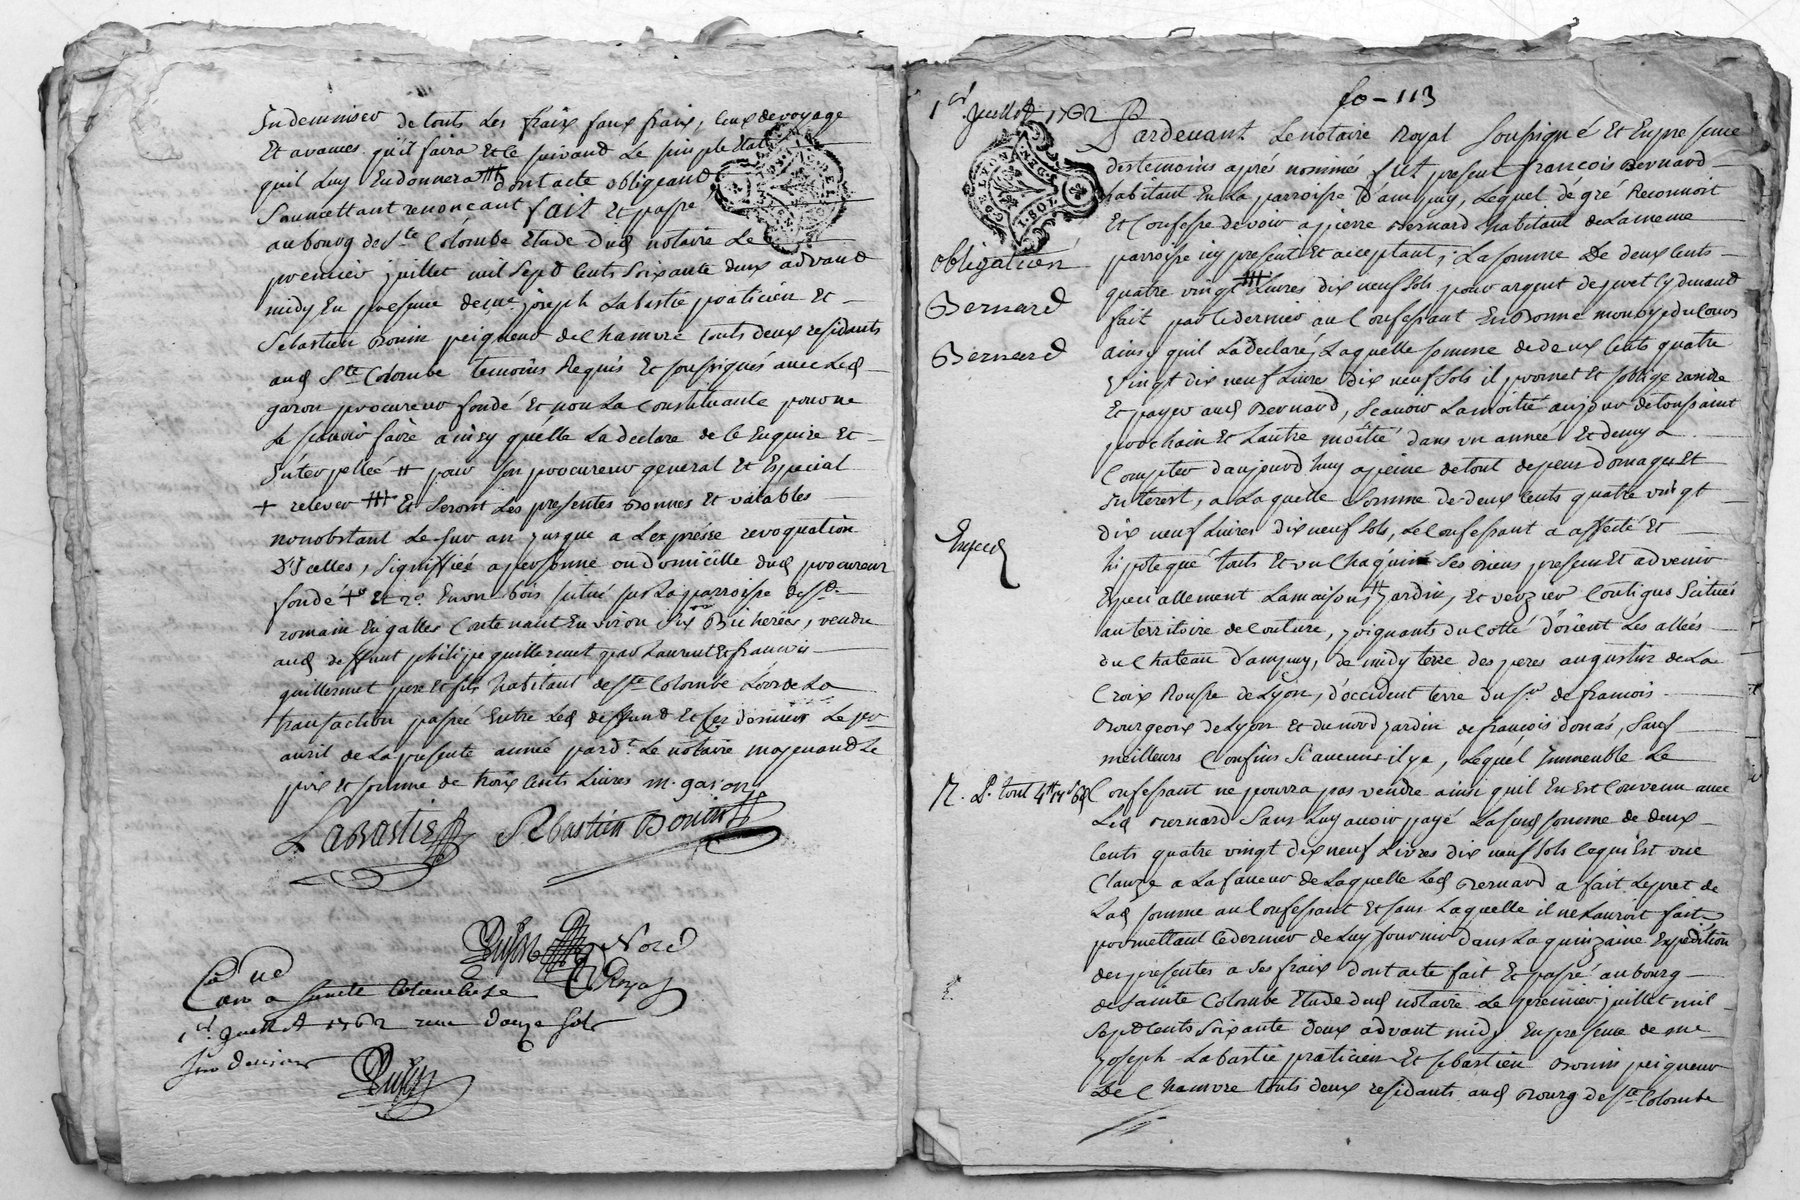 Indemniser de touts Les fraix faux fraix, Ceux de voyage
Et avances qu'il faira Et ce suivand Le simple Etat
quil Luy En donnera dont acte obligeand
Soumettant renoncant fait Et passé
au bourg de Ste Colombe Etude dud notaire Le
premier juillet mil sept Cents soixante deux advand
midy En presence de me joseph Labastie praticien Et
Sebastien Bonin peigneur de Chamvre touts deux residants
aud Ste Colombe temoins Requis Et soussignés avec Led
garon procureur fondé Et non La Constituante pour ne
Le scavoir faire ainsy qu'elle La declaré de ce Enquise Et
Interpellée # pour son procureur general Et Especial
+ relever ### Et Seront Les presentes Bonnes Et valables
nonobstant Le sur an jusque a L'expresse revoquation
D'Icelles, signiffiée a personne ou domicille dud procureur
fondé Et 2o En un bois situé sur La parroisse de St
romain En galles Contenant Environ six Bicherées, vendu
aud deffunt philippe guillermet par Laurent Et francois
guillermet pere Et fils habitant de Ste Colombe Lors de La
transaction passée Entre Led deffund Et Ces derniers Le
avril de La presente année pardt Le notaire moyenand Le
prix Et somme de trois Cents Livres m. garon
Labastie Sebastien Bonin
Nore
Royal
Cane
Cane a Saincte Colombe Le
1er juillet 1762 reçu douze sols
six deniers
fo - 113
1er Juillet 1762
Pardevant Le notaire Royal Soussigné Et En presence
des temoins aprés nommés fut present francois Bernard
habitant En La parroisse d'ampuy, Lequel de gré Reconnoit
Et Confesse devoir a pierre Bernard habitant de La meme
obligation
parroisse icy present Et acceptant, La somme De deux Cents
quatre vingt ### Livres dix neuf sols pour argent de pret Cy devand
Bernard
fait par Ce dernier au Confessant En Bonne monoye du Cours
Bernard
ainsy quil La declaré, Laquelle somme de deux Cents quatre
vingt dix neuf Livres dix neuf sols il promet Et s'oblige rendre
Et payer aud Bernard, scavoir La moitié au jour de toussaint
prochain Et Lautre moitié dans un année Et demy a
Compter d'aujourd huy a peine de tout depens domages Et
Interest, a Laquelle Somme de deux Cents quatre vingt
dix neuf Livres dix neuf sols, Le Confessant a affecté Et
Exped
hipotequé touts Et un Chaquin Ses Biens present Et advenir
Especiallement La maison, # jardin, Et verger Contigus Scitués
au territoire de Couture, joignants du Cotté d'orient Les allées
du Chateau d'ampuy, de midy terre des peres augustins de La
Croix Rousse de Lyon, d'occident terre du sr de francois
Bourgeois de Lyon Et du nord jardin de francois donas, Sauf
meilleurs Confins Si aucuns il y a, Lequel Immeuble Le
Confessant ne pourra pas vendre ainsi quil En Est Convenu avec
Led Bernard Sans Luy avoir payé La sud somme de deux
Cents quatre vingt dix neuf Livres dix neuf sols Ce qui Est une
Clauze a La faveur de Laquelle Led Bernard a fait Le pret de
Lad somme au Confessant Et sans Laquelle il ne Lauroit fait
promettant Ce dernier de Luy fournir dans La quinzaine Expedition
des presentes a ses fraix dont acte fait Et passé au bourg
de Sainte Colombe Etude dud notaire Le premier juillet mil
Sept Cents Soixante deux advant midy En presence de me
joseph Labastie praticien Et sebastien Bonin peigneur
de Chamvre touts deux residants aud Bourg de Ste Colombe